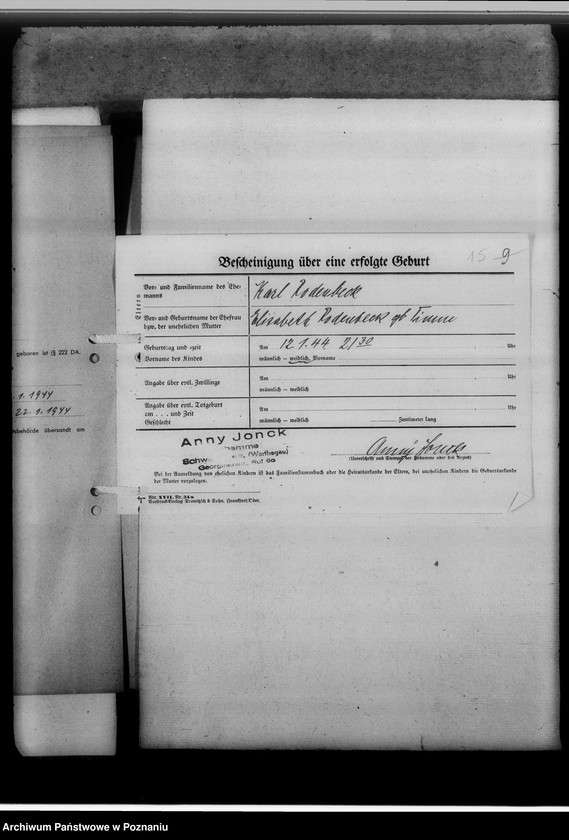 15 9
Bescheinigung über eine erfolgte Geburt
Eltern
Vor- und Familienname des Ehe-
manns
Karl Rodenbeck
Vor- und Geburtsname der Ehefrau
bzw. der unehelichen Mutter
Elisabeth Rodenbeck gb Timme
Geburtstag und -zeit
Am 12 1.44 2/30 Uhr
Vorname des Kindes
männlich – weiblich, Vorname
Angabe über evtl. Zwillinge
Am , Uhr
männlich – weiblich
Angabe über evtl. Totgeburt
am . . . und Zeit
Geschlecht
Am , Uhr
männlich – weiblich Zentimeter lang
Anny Jonck
(Warthegau)
Ruf
Anny Jonck
(Unterschrift und Stempel der Hebamme oder des Arztes)
Bei der Anmeldung von ehelichen Kindern ist das Familienstammbuch oder die Heiratsurkunde der Eltern, bei unehelichen Kindern die Geburtsurkunde
der Mutter vorzulegen.
XVII. Nr. 34a
Frankfurt/Oder.
geboren ist (§ 222 DA.
.1.1944
22.1.1944
behörde übersandt am
Archiwum Państwowe w Poznaniu